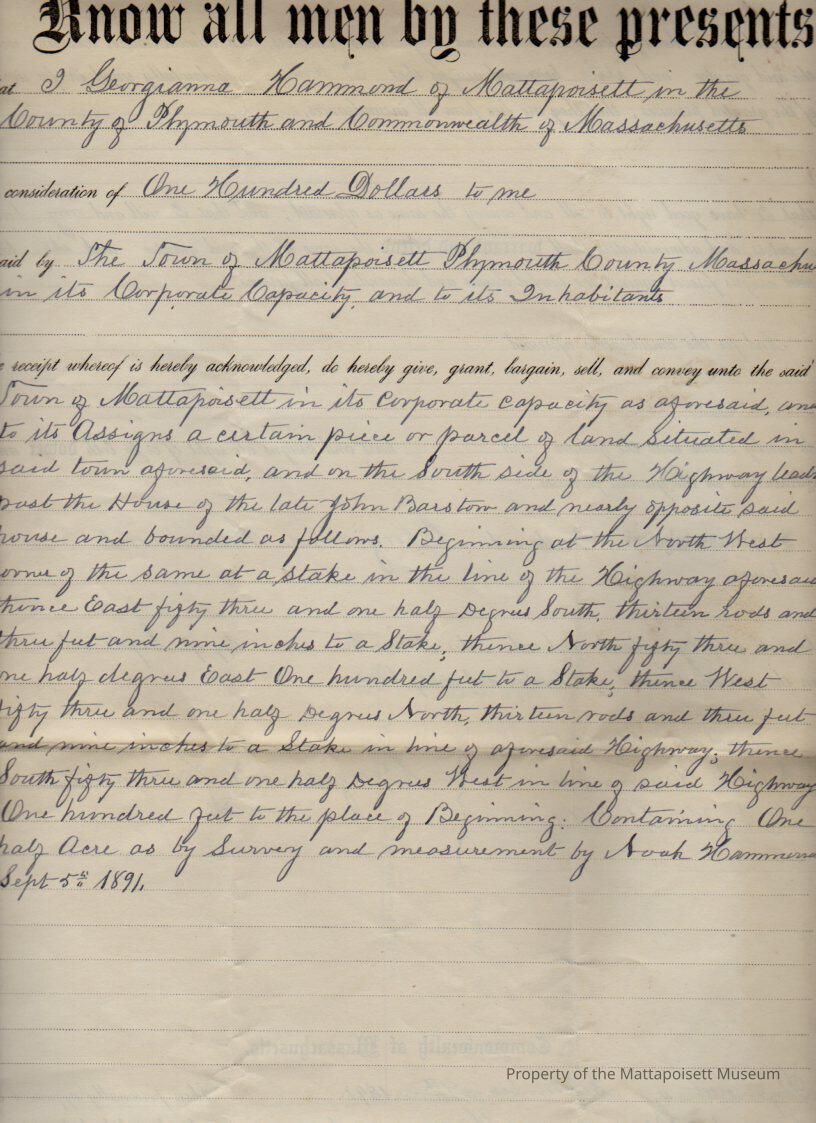 Know all men by these presents
at I Georgianna Hammond of Mattapoisett in the
County of Plymouth and Commonwealth of Massachusetts
consideration of One Hundred Dollars to me
aid by The Town of Mattapoisett Plymouth County Massachu
in its Corporate Capacity, and to its Inhabitants
e receipt whereof is hereby acknowledged, do hereby give, grant, bargain, sell, and convey unto the said
Town of Mattapoisett in its Corporate capacity as aforesaid, and
to its Assigns a certain piece or parcel of land situated in
said town aforesaid, and on the South side of the Highway leads
past the House of the late John Barstow and nearly opposite said
house and bounded as follows. Beginning at the North West
orner of the same at a stake in the line of the Highway aforesaid
thence East fifty three and one half Degrees South, thirteen rods and
three feet and nine inches to a Stake; thence North fifty three and
one half degrees East One hundred feet to a Stake; thence West
fifty three and one half Degrees North, thirteen rods and three feet
and nine inches to a Stake in line of aforesaid Highway; thence
South fifty three and one half Degrees West in line of said Highway
One hundred feet to the place of Beginning: Containing One
half Acre as by Survey and measurement by Noah Hammond
Sept 5th 1891.
Property of the Mattapoisett Museum